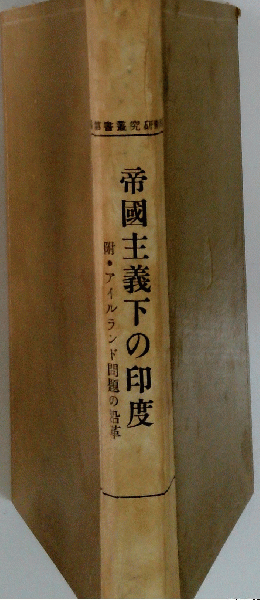 書叢究研
帝國主義下の印度
附・アイルランド問題の沿革